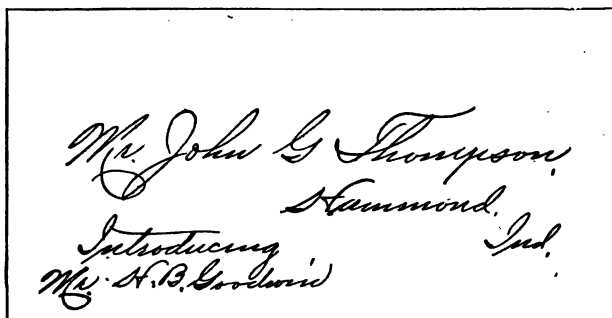 Mr. John G Thompson,
Hammond,
Ind.
Introducing
Mr. H. B. Goodwin